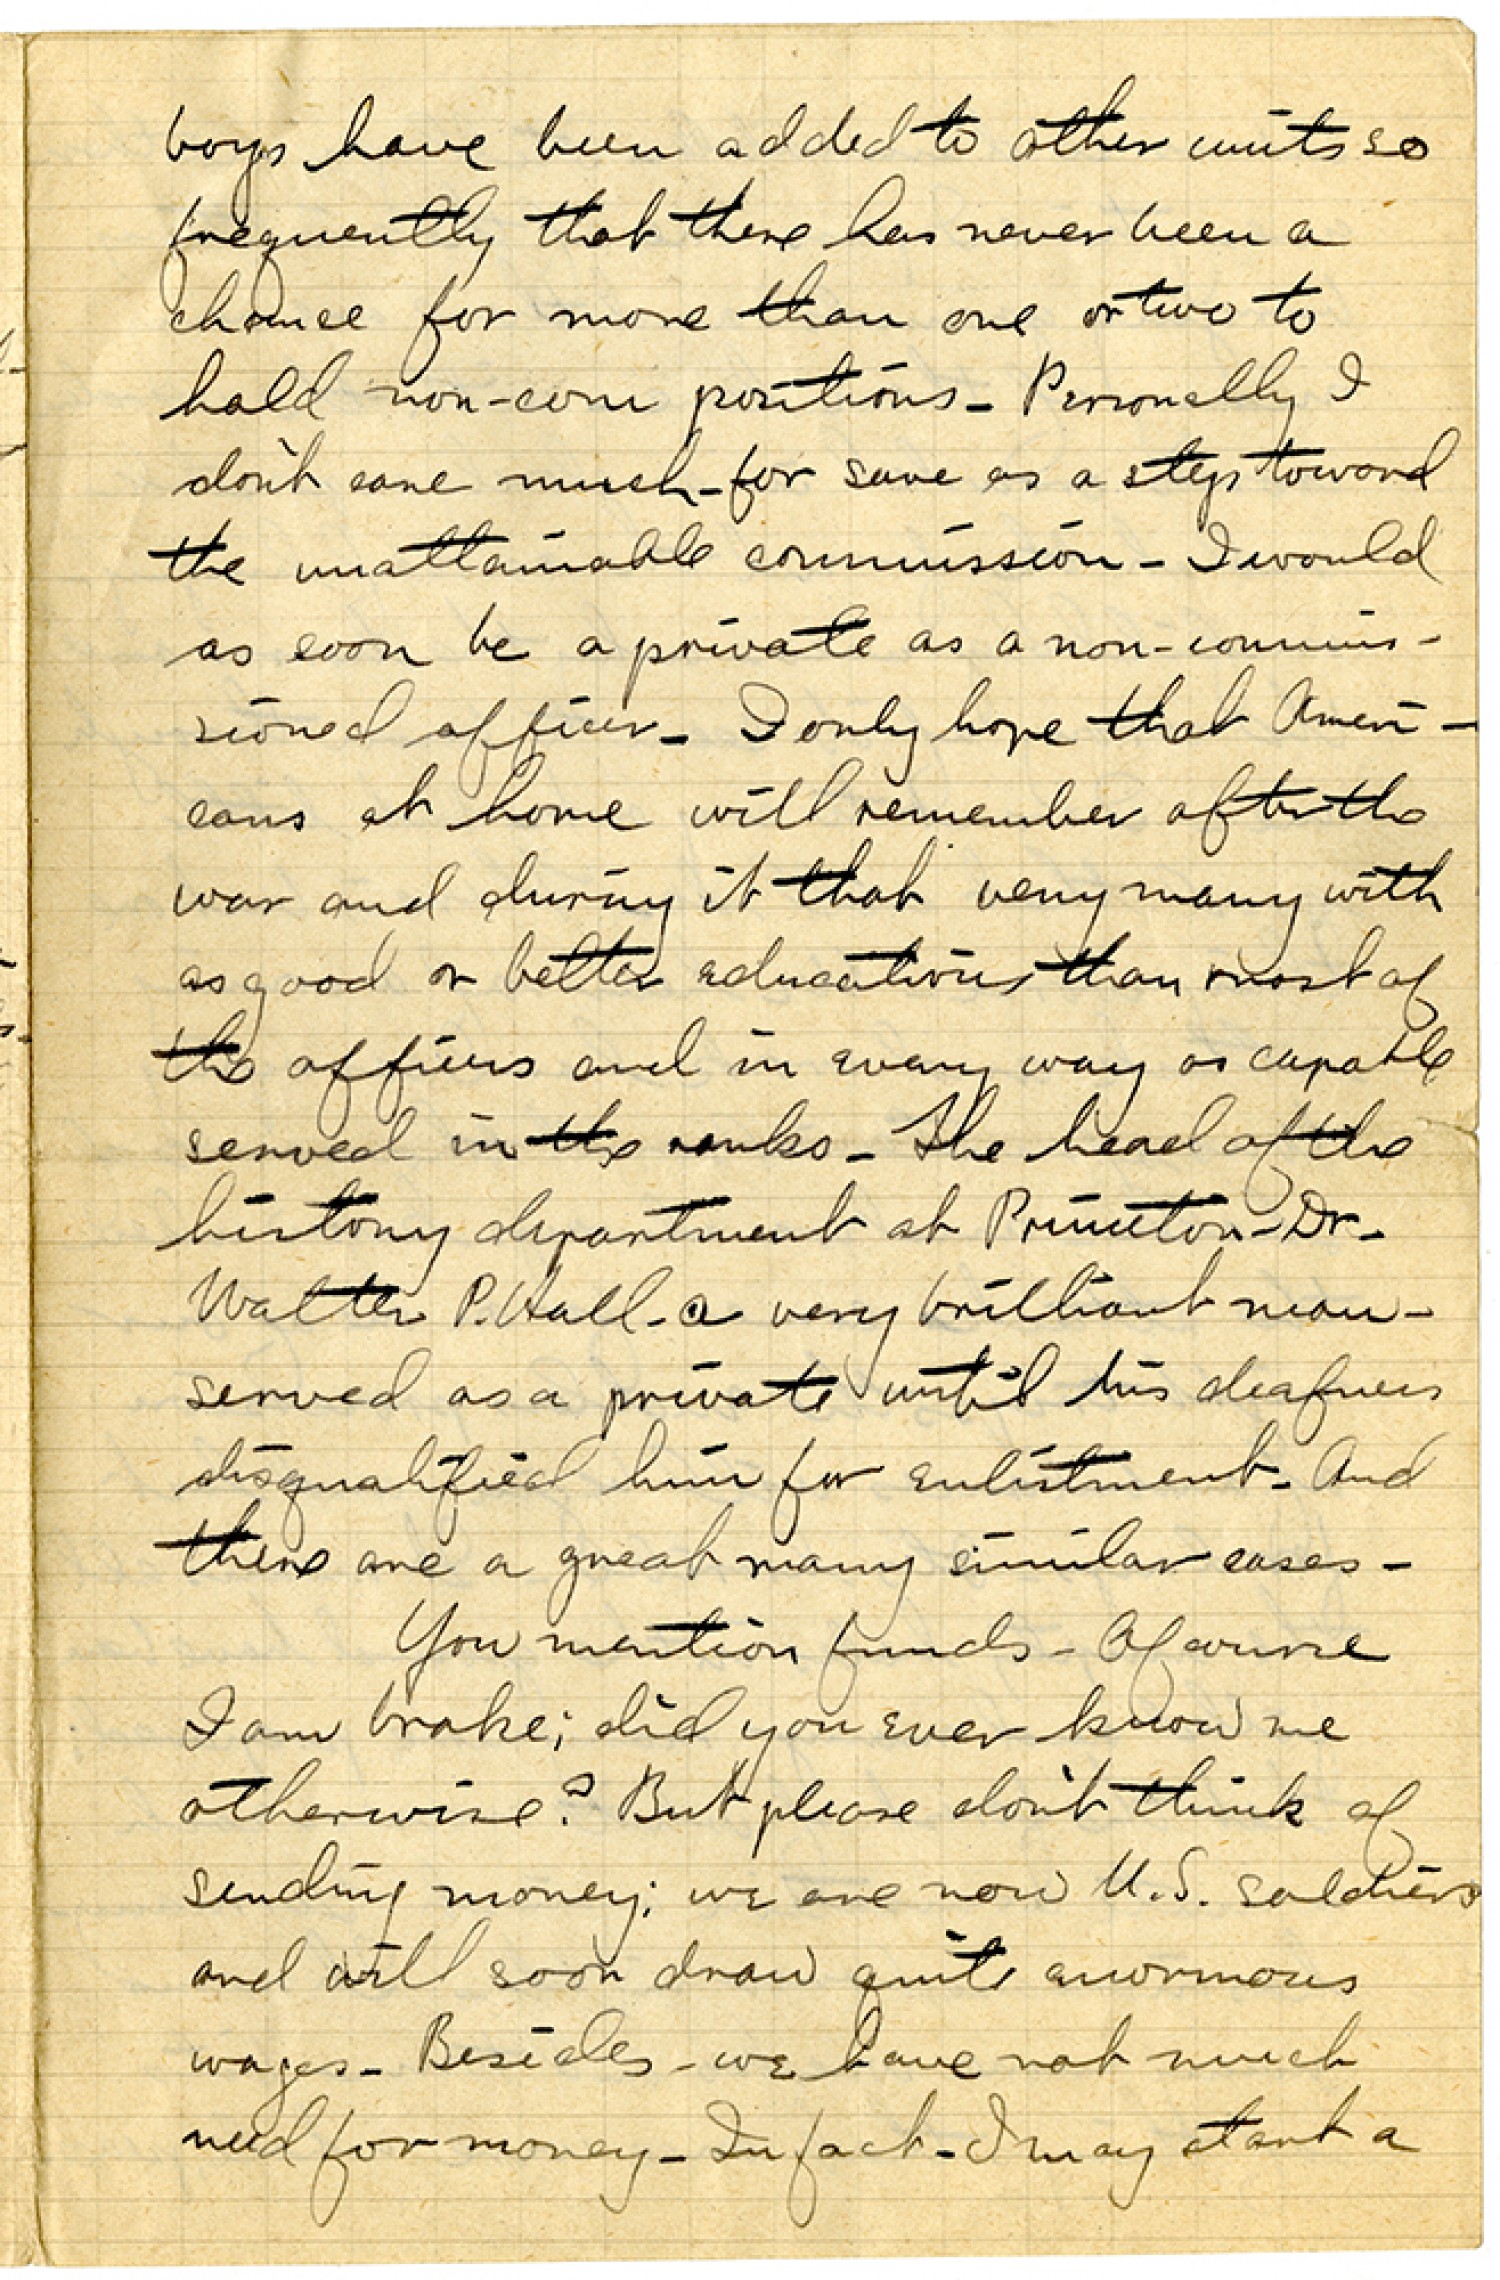 boys have been added to other units so
frequently that there has never been a
chance for more than one or two to
hold non-com positions - Personally I
don't care much - for save as a step toward
the unattainable commission - I would
as soon be a private as a non-commis-
sioned officer - I only hope that Ameri-
cans at home will remember after the
war and during it that very many with
as good or better educations than most of
the officers and in every way as capable
served in the ranks - The head of the
history department at Princeton - Dr.
Walter P. Hall - a very brilliant man -
served as a private until his deafness
disqualified him for enlistment - And
there are a great many similar cases -
You mention funds - Of course
I am broke; did you ever know me
otherwise? But please don't think of
sending money; we are now U.S. soldiers
and will soon draw quite enormous
wages - Besides - we have not much
need for money - In fact - I may start a